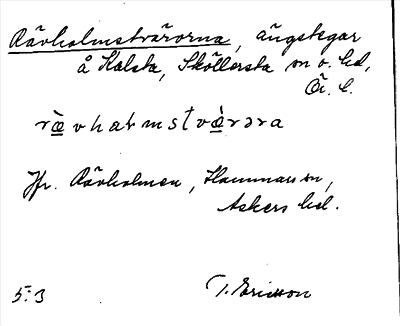 Rävholmstvärorna, ängstegar
å Kalsta, Sköllersta sn o. hd,
Ör. l.
rævhaɫmstværəra
Jfr. Rävholmen, Hammars sn,
Askers hd.
5:3 T. Ericsson